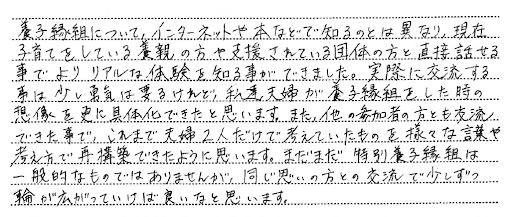 養子縁組について、インターネットや本などで知るのとは異なり、現在
子育てをしている養親の方や支援されている団体の方と直接話せる
事でよりリアルな体験を知る事ができました。実際に交流する
事は少し勇気は要るけれど、私達夫婦が養子縁組をした時の
想像を更に具体化できたと思います。また、他の参加者の方とも交流
できた事で、これまで夫婦2人だけで考えていたものを様々な言葉や
考え方で再構築できたように思います。まだまだ特別養子縁組は
一般的なものではありませんが、同じ思いの方との交流で少しずつ
輪が広がっていけば良いなと思います。